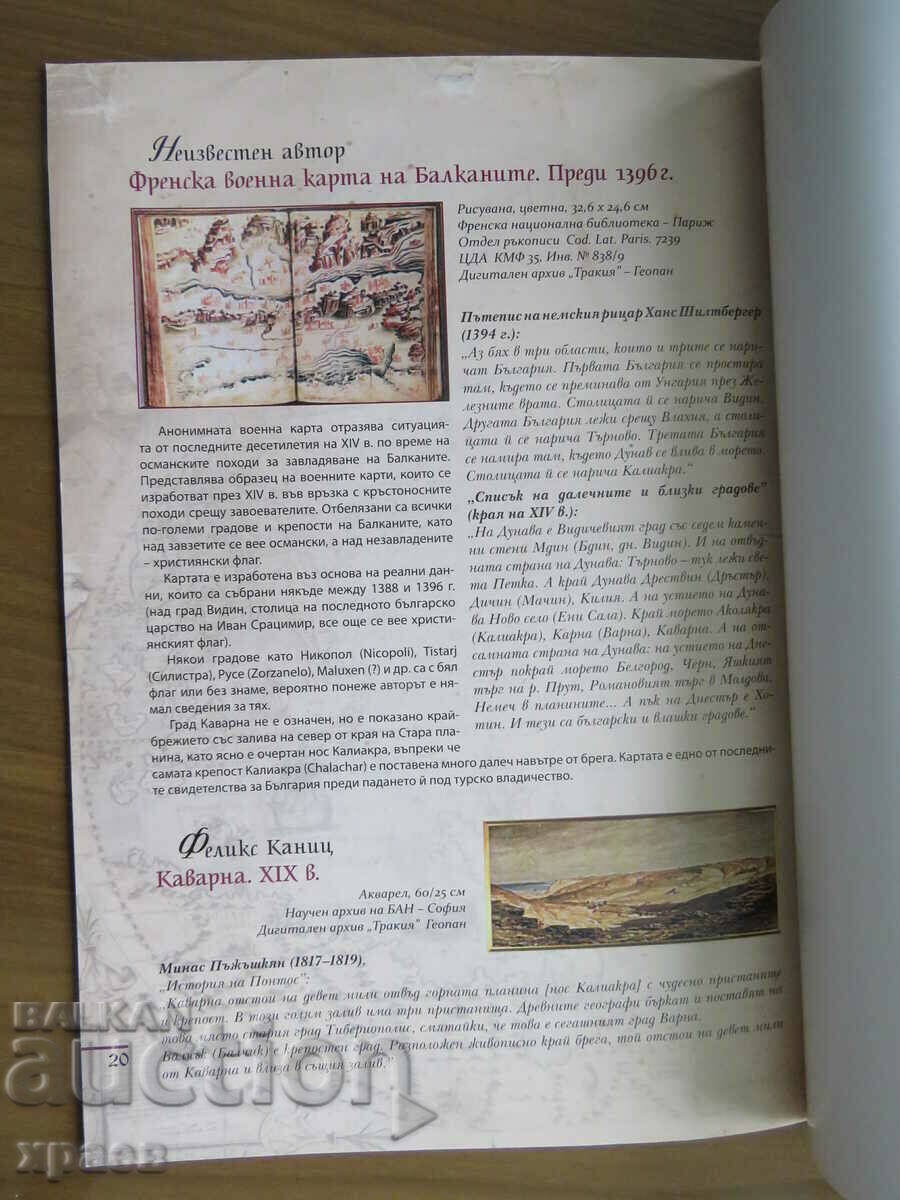 Неизвестен автор
Френска военна карта на Балканите. Преди 1396 г.
Рисувана, цветна, 32,6 x 24,6 см
Френска национална библиотека – Париж
Отдел ръкописи Cod. Lat. Paris. 7239
ЦДА КМФ 35, Инв. № 838/9
Дигитален архив „Тракия" – Геопан
Анонимната военна карта отразява ситуация-
та от последните десетилетия на XIV в. по време на
османските походи за завладяване на Балканите.
Представлява образец на военните карти, които се
изработват през XIV в. във връзка с кръстоносните
походи срещу завоевателите. Отбелязани са всички
по-големи градове и крепости на Балканите, като
над завзетите се вее османски, а над незавладените
– християнски флаг.
Картата е изработена въз основа на реални дан-
ни, които са събрани някъде между 1388 и 1396 г.
(над град Видин, столица на последното българско
царство на Иван Срацимир, все още се вее христи-
янският флаг).
Някои градове като Никопол (Nicopoli), Tistarj
(Силистра), Русе (Zorzanelo), Maluxen (?) и др. са с бял
флаг или без знаме, вероятно понеже авторът е ня-
мал сведения за тях.
Град Каварна не е означен, но е показано край-
брежието със залива на север от края на Стара пла-
нина, като ясно е очертан нос Калиакра, въпреки че
самата крепост Калиакра (Chalachar) е поставена много далеч навътре от брега. Картата е едно от последни-
те свидетелства за България преди падането ѝ под турско владичество.
Пътепис на немския рицар Ханс Шилтбергер
(1394 г.):
„Аз бях в три области, които и трите се нари-
чат България. Първата България се простира
там, където се преминава от Унгария през Же-
лезните врата. Столицата ѝ се нарича Видин.
Другата България лежи срещу Влахия, а столи-
цата ѝ се нарича Търново. Третата България
се намира там, където Дунав се влива в морето.
Столицата ѝ се нарича Калиакра."
„Списък на далечните и близки градове"
(края на XIV в.):
„На Дунава е Видичевият град със седем камен-
ни стени Мдин (Бдин, дн. Видин). И на отвъд-
ната страна на Дунава: Търново – тук лежи све-
та Петка. А край Дунава Дрествин (Дръстър),
Дичин (Мачин), Килия. А на устието на Дуна-
ва Ново село (Ени Сала). Край морето Аколякра
(Калиакра), Карна (Варна), Каварна. А на от-
самната страна на Дунава: на устието на Дне-
стър покрай морето Белгород, Черн, Яткият
търг на р. Прут, Романовият търг в Молдова,
Немеч в планините... А пък на Днестър е Хо-
тин. И тези са български и влашки градове."
Феликс Каниц
Каварна. XIX в.
Акварел, 60/25 см
Научен архив на БАН – София
Дигитален архив „Тракия" Геопан
Минас Пъжъшкян (1817–1819),
„История на Понтос":
„Каварна отстои на девет мили отвъд горната планина [нос Калиакра] с чудесно пристанище
и крепост. В този голям залив има три пристанища. Древните географи бъркат и поставят на
това място стария град Тибериополис, смятайки, че това е сегашният град Варна.
Балчък (Балчик) е крепостен град. Разположен живописно край брега, той отстои на девет мили
от Каварна и влиза в същия залив."
20
BALKAN
auction
храсв